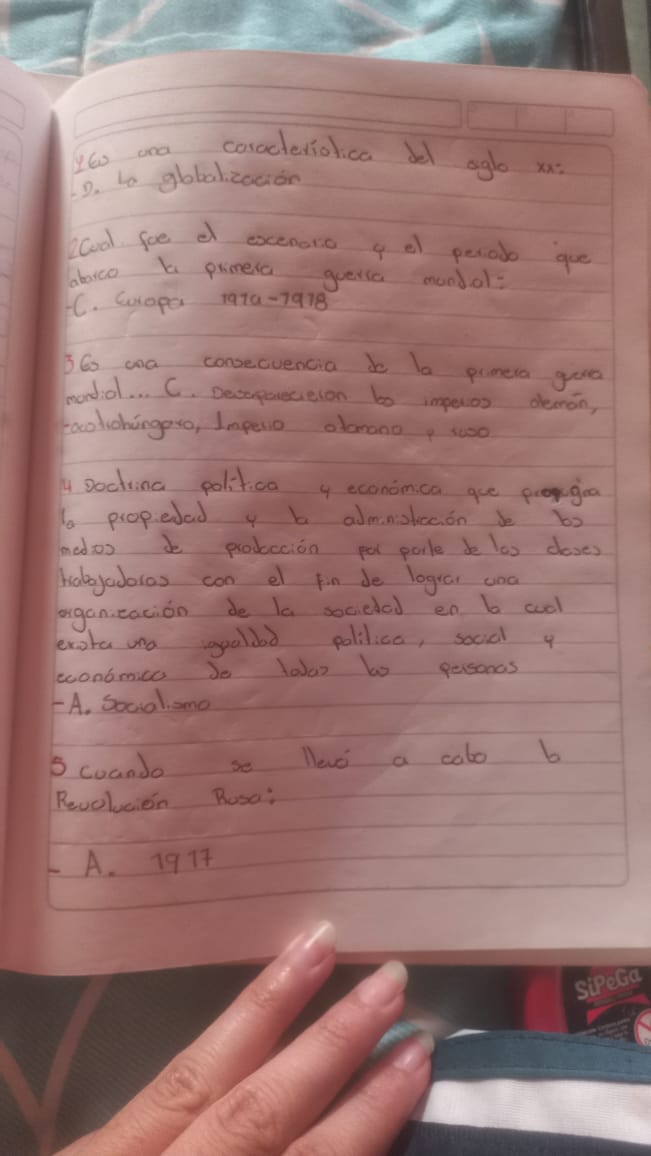 1 Es una característica del siglo xx:
-D. La globalización
2 Cual fue el escenario y el periodo que
abarco la primera guerra mundial:
-C. Europa 1914-1918
3 Es una consecuencia de la primera guerra
mundial... C. Desaparecieron los imperios alemán,
-austrohúngaro, Imperio otomano y ruso
4 Doctrina política y económica que propugna
la propiedad y la administración de los
medios de producción por parte de las clases
trabajadoras con el fin de lograr una
organización de la sociedad en la cual
exista una igualdad política, social y
económica de todas las personas
-A. Socialismo
5 Cuando se llevó a cabo la
Revolución Rusa:
- A. 1917
SiPeGa